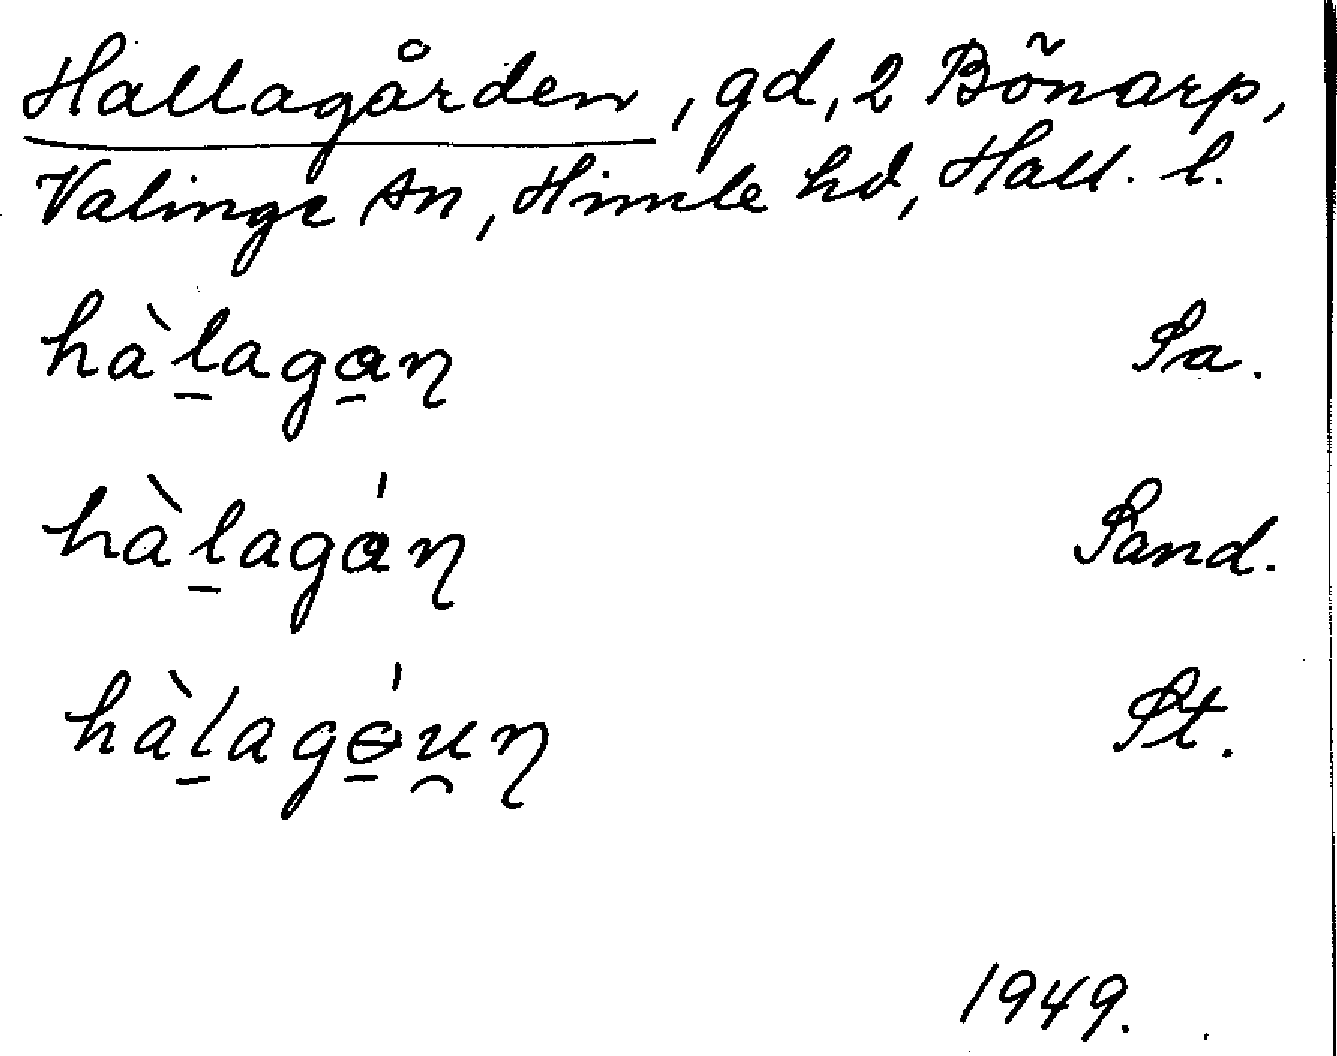 Hallagården, gd, 2 Bönarp,
Valinge sn, Himle hd, Hall. l.
hàl̲aga̲ɳ Sa.
hàl̲agáɳ Sand.
hàl̲agɵ̲́u̯ɳ St.
1949.